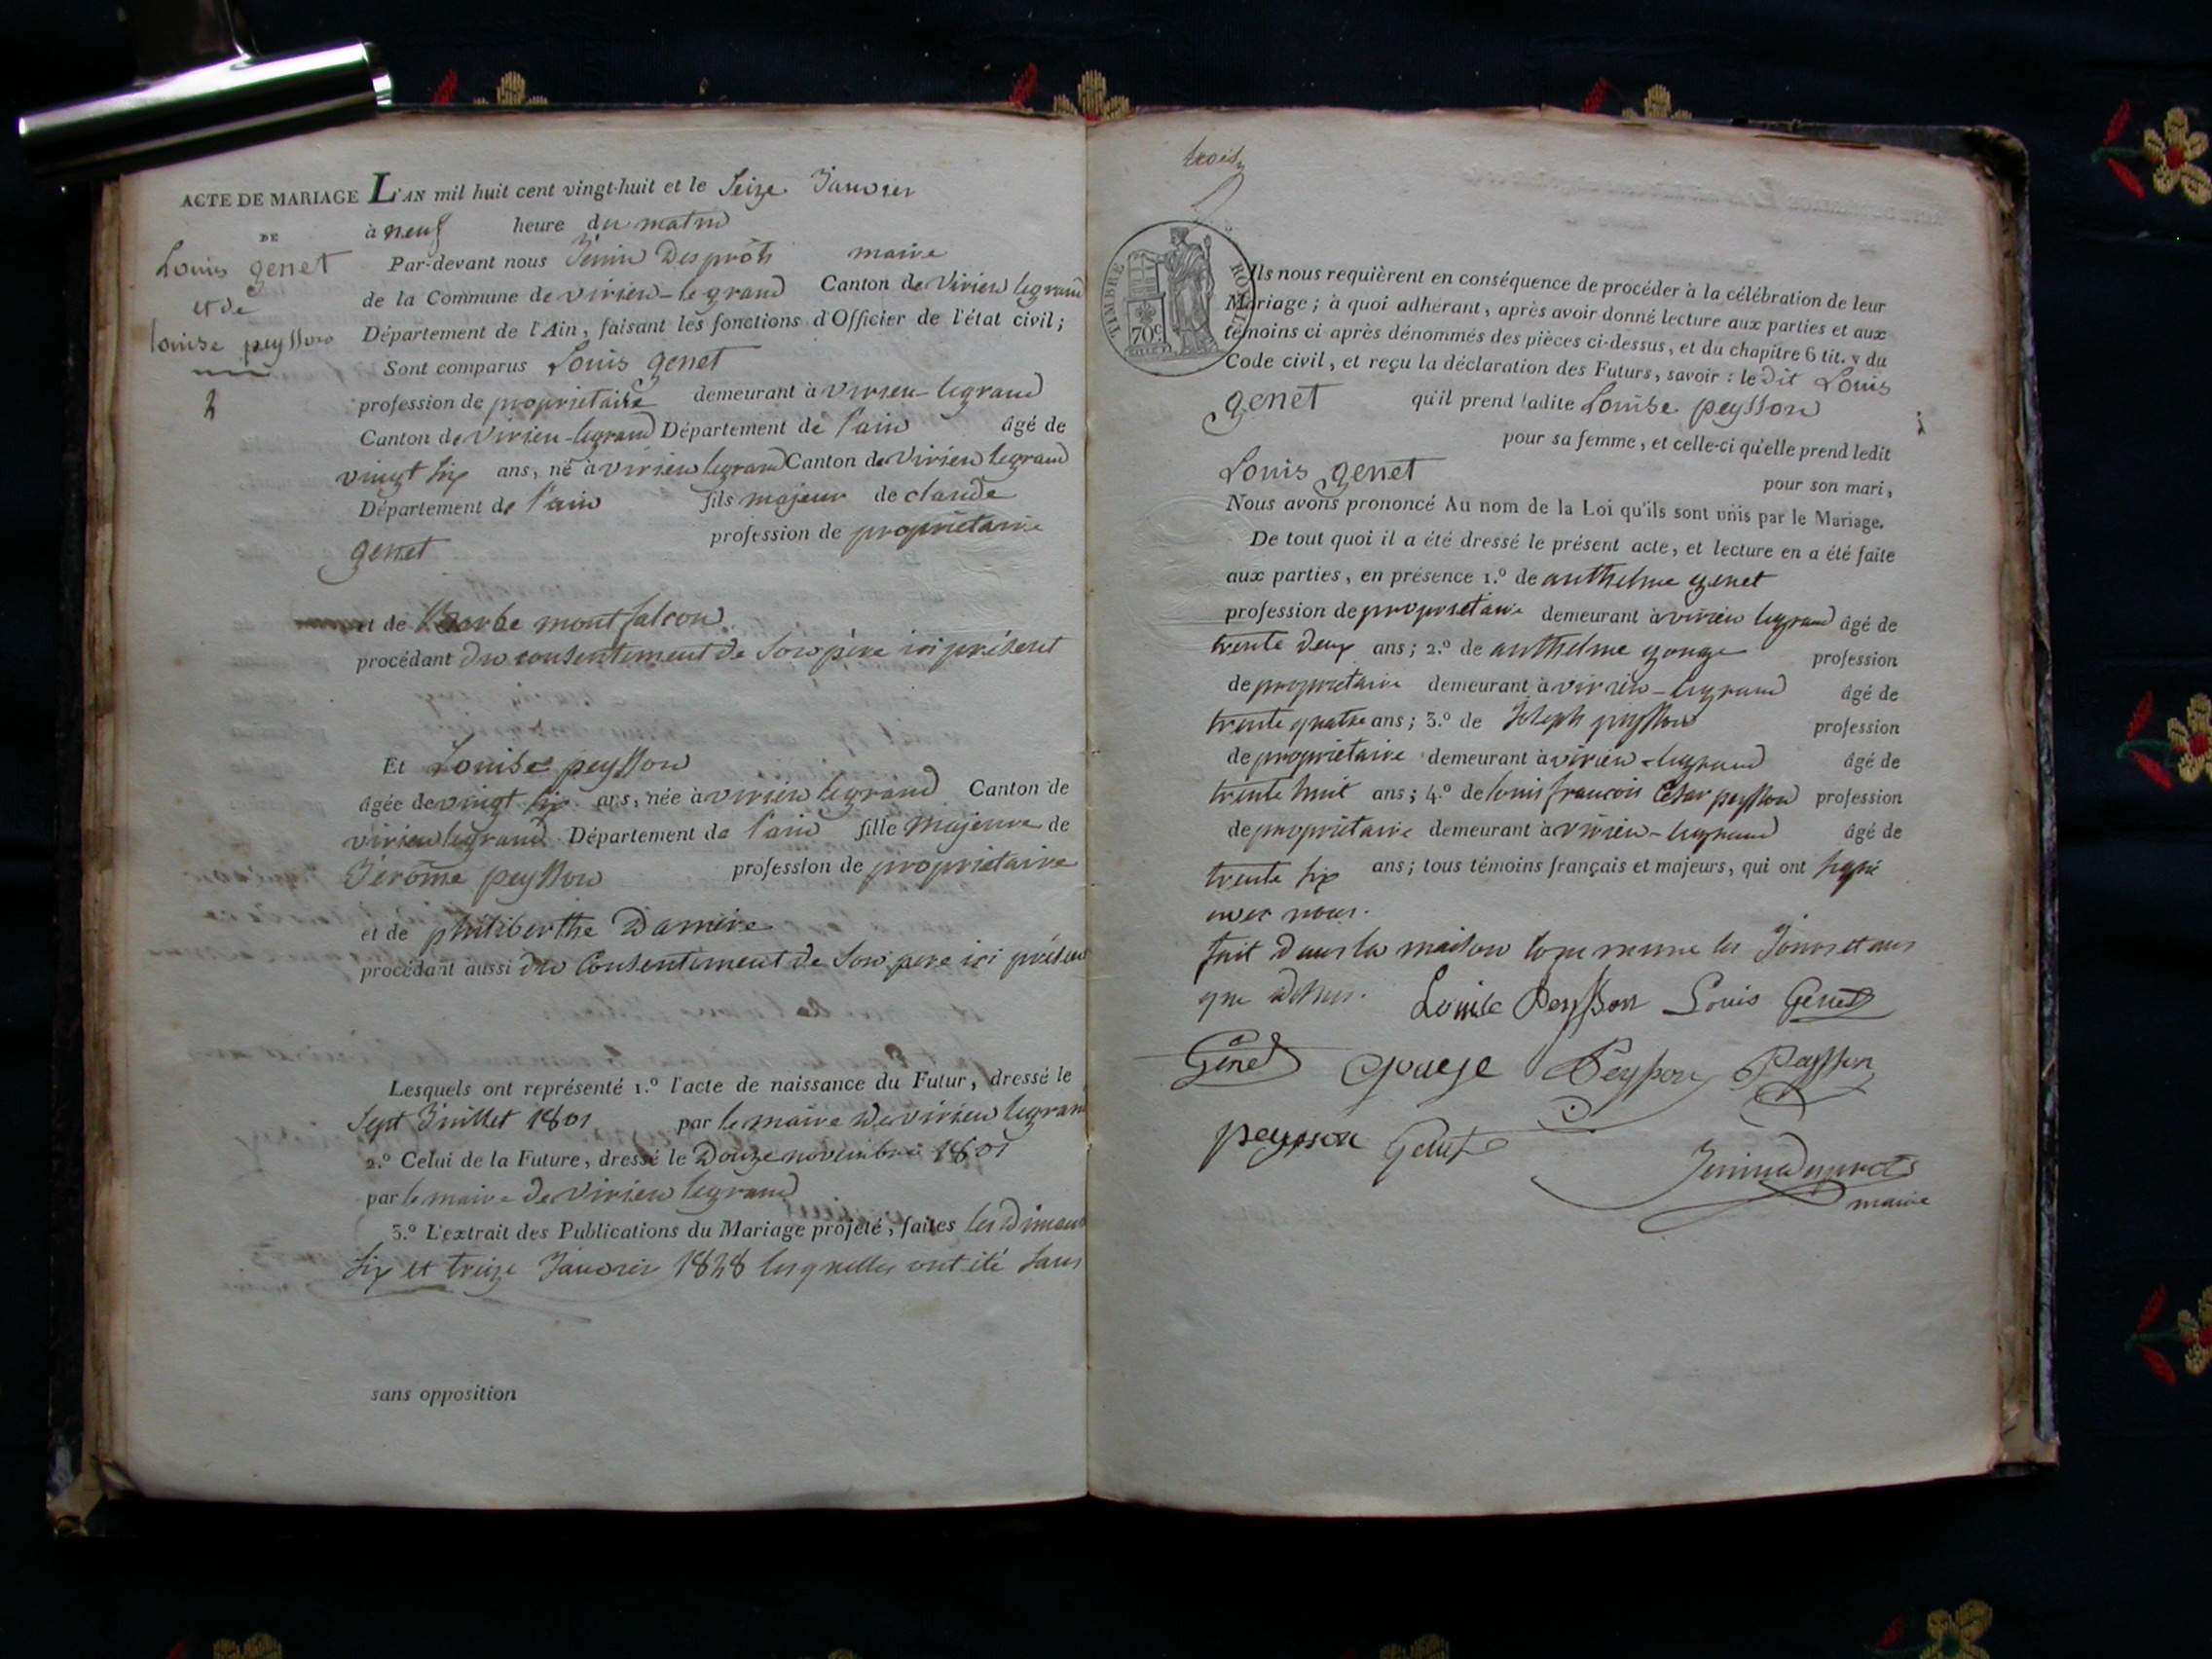 ACTE DE MARIAGE L'AN mil huit cent vingt-huit et le Seize Janvier
DE
à neuf heure du matin
Louis genet
et de
louise peysson
2
Par-devant nous Jenin Desprôts maire
de la Commune de virieu-legrand Canton de Virieu legrand
Département de l'Ain, faisant les fonctions d'Officier de l'état civil;
Sont comparus Louis genet
profession de propriétaire demeurant à virieu-legrand
Canton de Virieu-legrand Département de l'ain âgé de
vingt six ans, né à virieu legrand Canton de Virieu legrand
Département de l'ain fils majeur de claude
genet profession de propriétaire
et de Barbe montfalcon
procédant du consentement de son père ici présent
Et Louise peysson
âgée de vingt six ans, née à virieu legrand Canton de
virieu legrand Département de l'ain fille majeure de
Jérôme peysson profession de propriétaire
et de philiberthe
procédant aussi du Consentement de son pere ici présent
Lesquels ont représenté 1.º l'acte de naissance du Futur, dressé le
Sept Juillet 1801 par le maire de virieu legrand
2.º Celui de la Future, dressé le Douze novembre 1801
par le maire de Virieu legrand
3.º L'extrait des Publications du Mariage projeté, faites les Dimanc
six et treize Janvier 1828 lesquelles ont été sans
sans opposition
trois
TIMBRE ROYAL
70c
Ils nous requièrent en conséquence de procéder à la célébration de leur
Mariage; à quoi adhérant, après avoir donné lecture aux parties et aux
témoins ci-après dénommés des pièces ci-dessus, et du chapitre 6 tit. v du
Code civil, et reçu la déclaration des Futurs, savoir: le dit Louis
genet qu'il prend ladite Louise peysson
pour sa femme, et celle-ci qu'elle prend ledit
Louis genet pour son mari,
Nous avons prononcé Au nom de la Loi qu'ils sont unis par le Mariage.
De tout quoi il a été dressé le présent acte, et lecture en a été faite
aux parties, en présence 1.º de anthelme genet
profession de propriétaire demeurant à virieu legrand âgé de
trente deux ans; 2.º de anthelme gouge profession
de propriétaire demeurant à virieu-legrand âgé de
trente quatre ans; 3.º de Joseph peysson profession
de propriétaire demeurant à virieu-legrand âgé de
trente huit ans; 4.º de louis francois César peysson profession
de propriétaire demeurant à virieu-legrand âgé de
trente six ans; tous témoins français et majeurs, qui ont signé
avec nous.
fait dans la maison commune les Jours et ans
que dessus. Louise Peysson Louis Genet
Genet Gouge Peysson Peysson
peysson Genet
Jenin Desprots
maire